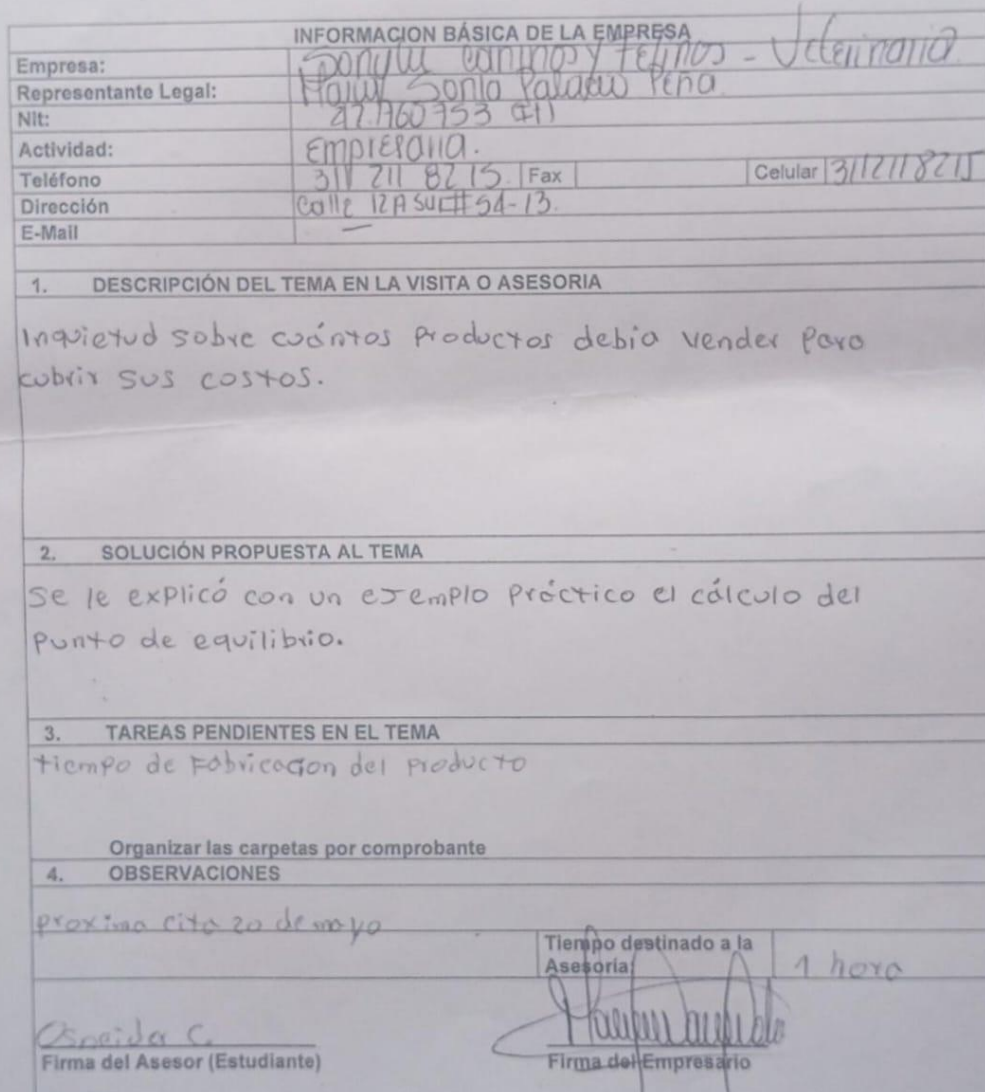 INFORMACION BÁSICA DE LA EMPRESA
Empresa: caninos y felinos - Veterinaria
Representante Legal: Sonia Peña
Nit:
Actividad: Empresaria.
Teléfono 311 211 8215. Fax Celular 3112118215
Dirección Calle 12A SUR # 54-13.
E-Mail —
1. DESCRIPCIÓN DEL TEMA EN LA VISITA O ASESORIA
Inquietud sobre cuántos productos debia vender para
cubrir sus costos.
2. SOLUCIÓN PROPUESTA AL TEMA
Se le explicó con un ejemplo práctico el cálculo del
punto de equilibrio.
3. TAREAS PENDIENTES EN EL TEMA
tiempo de Fabricacion del producto
Organizar las carpetas por comprobante
4. OBSERVACIONES
proxima cita 20 de mayo
Tiempo destinado a la
Asesoria: 1 hora
C.
Firma del Asesor (Estudiante) Firma del Empresario